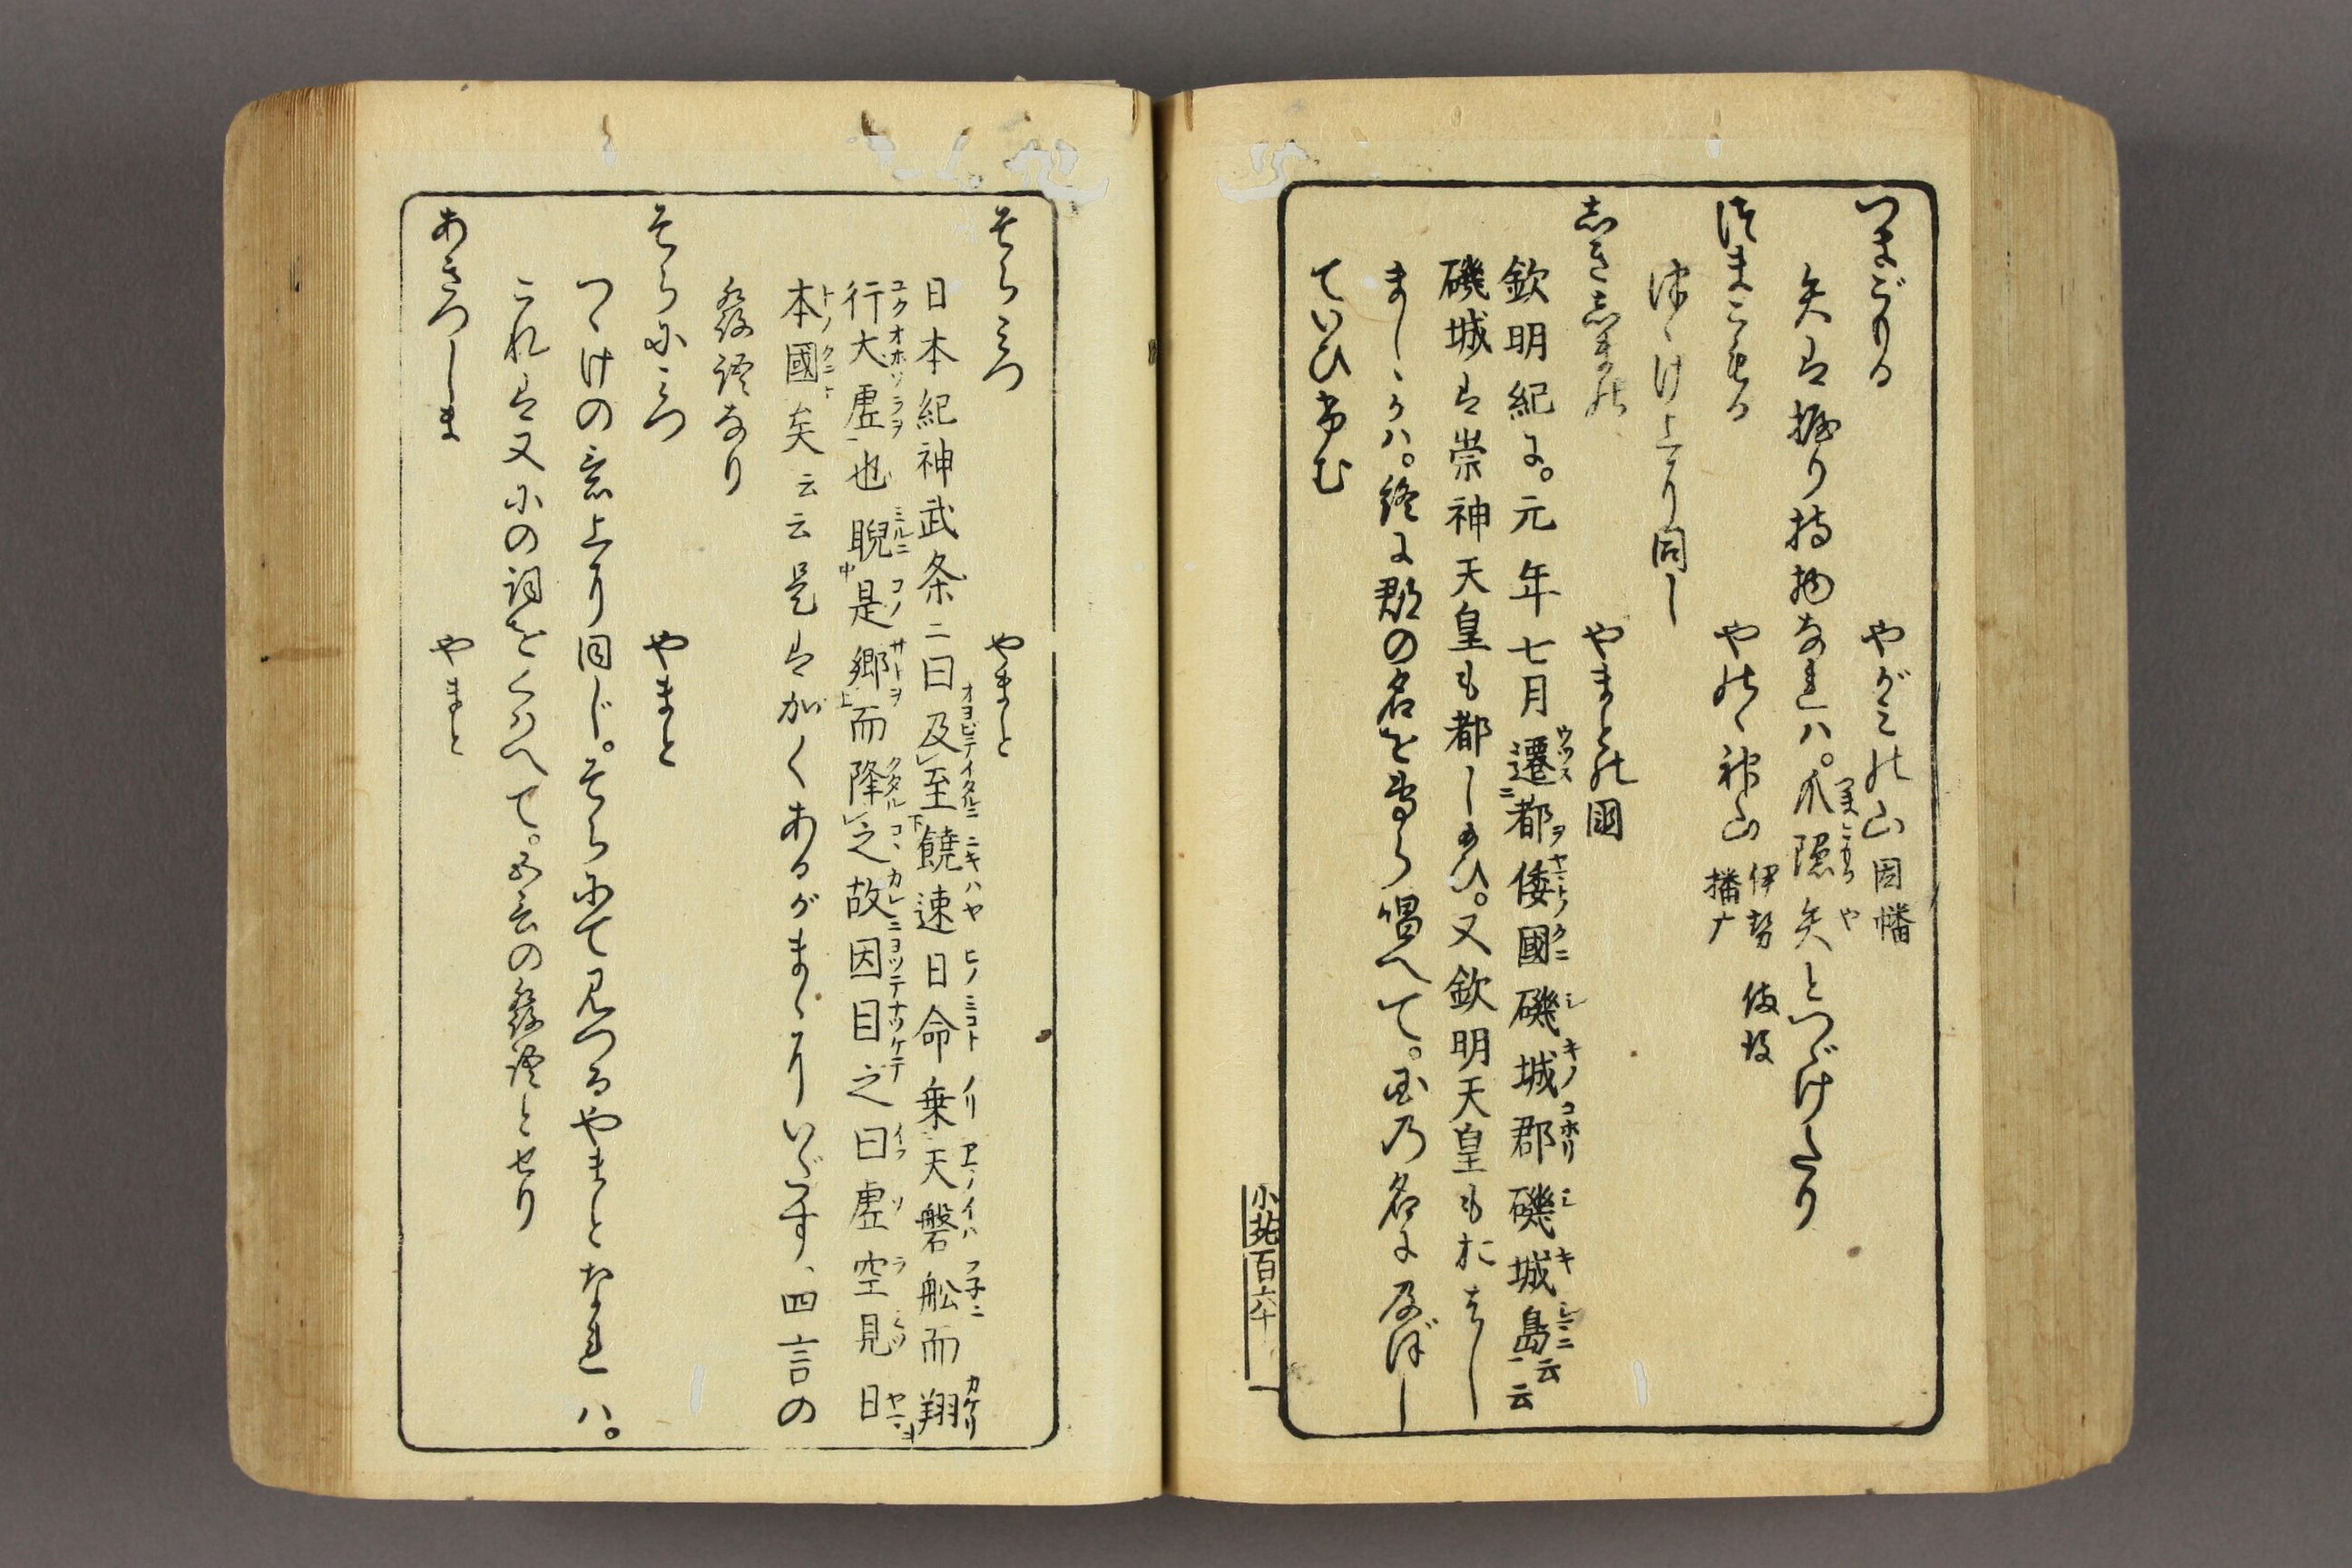 つまごもる　やがみの山 因幡
矢は握り持物なれハ。爪隠矢とつゞけたり
つまこもる　やのゝ神山 伊勢 播广 備後
つゝけ上に同し
しきしまの　やまとの國
欽明紀に。元年七月遷都倭國磯城郡磯城島云云
磯城は崇神天皇も都し給ひ。又欽明天皇もおはし
ましゝかハ。終に郡の名を専ら唱へて。国乃名に及ぼし
ていひけむ
小苑百六十一
そらみつ　やまと
日本紀神武条ニ曰及至饒速日命乗天磐舩而翔
行大虚也睨是郷而降之故因目之曰虚空見日
本國矣云云是はかくあるがまゝにいへず、四言の
發語なり
そらにみつ　やまと
つゝけの意上に同じ。そらにて見つるやまとなれハ。
これは又にの詞をくはへて。五言の發語とせり
あきつしま　やまと